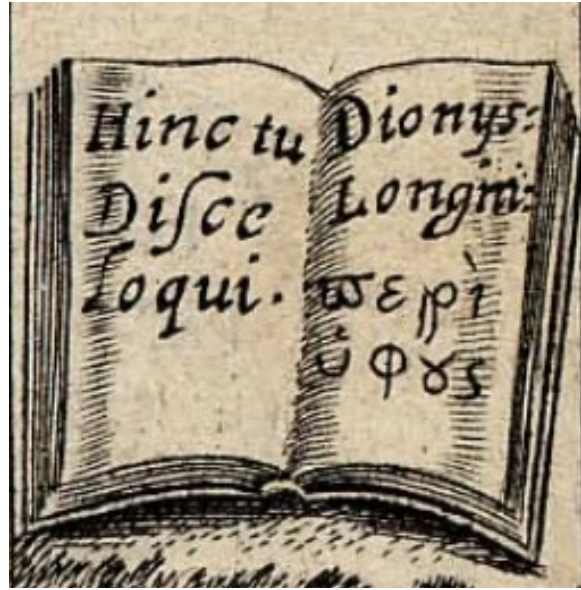 Hinc tu
Diſce
loqui.
Dionys:
Longini:
ϖερὶ
ὑφȣς